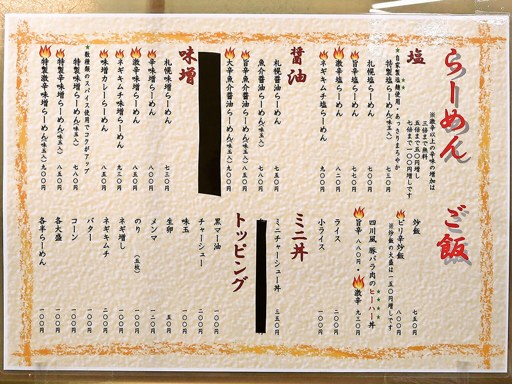 らーめん
※激辛以上の辛味の増加は
三倍まで無料、
五倍まで五〇円増し
七倍まで一〇〇円増しです
塩
札幌塩らーめん 七五〇円
旨辛塩らーめん 八〇〇円
激辛塩らーめん 八五〇円
ネギキムチ塩らーめん
醤油
札幌醤油らーめん
魚介醤油らーめん(味玉入)
旨辛魚介醤油らーめん(味玉入)
大辛魚介醤油らーめん(味玉入)
味噌
札幌味噌らーめん 七五〇円
辛味噌らーめん 八〇〇円
激辛味噌らーめん 八五〇円
ネギキムチ味噌らーめん
味噌カレーらーめん 八五〇円
★数種類のスパイス使用でコクがアップ
特製味噌らーめん(味玉入)
特製辛味噌らーめん(味玉入)
特製激辛味噌らーめん(味玉入) 九〇〇円
ご飯
炒飯 七五〇円
ピリ辛炒飯 八〇〇円
※炒飯の大盛は一五〇円増しです
四川風 豚バラ肉のヒーハー丼
旨辛 八八〇円・激辛 九三〇円
ライス 二〇〇円
小ライス 一〇〇円
ミニ丼
ミニチャーシュー丼 三五〇円
トッピング
黒マー油 一〇〇円
チャーシュー
味玉 一〇〇円
生卵 五〇円
メンマ
のり(五枚) 一〇〇円
ネギ増し
ネギキムチ
バター 一〇〇円
コーン 一〇〇円
各大盛 一〇〇円
各半らーめん 一〇〇円